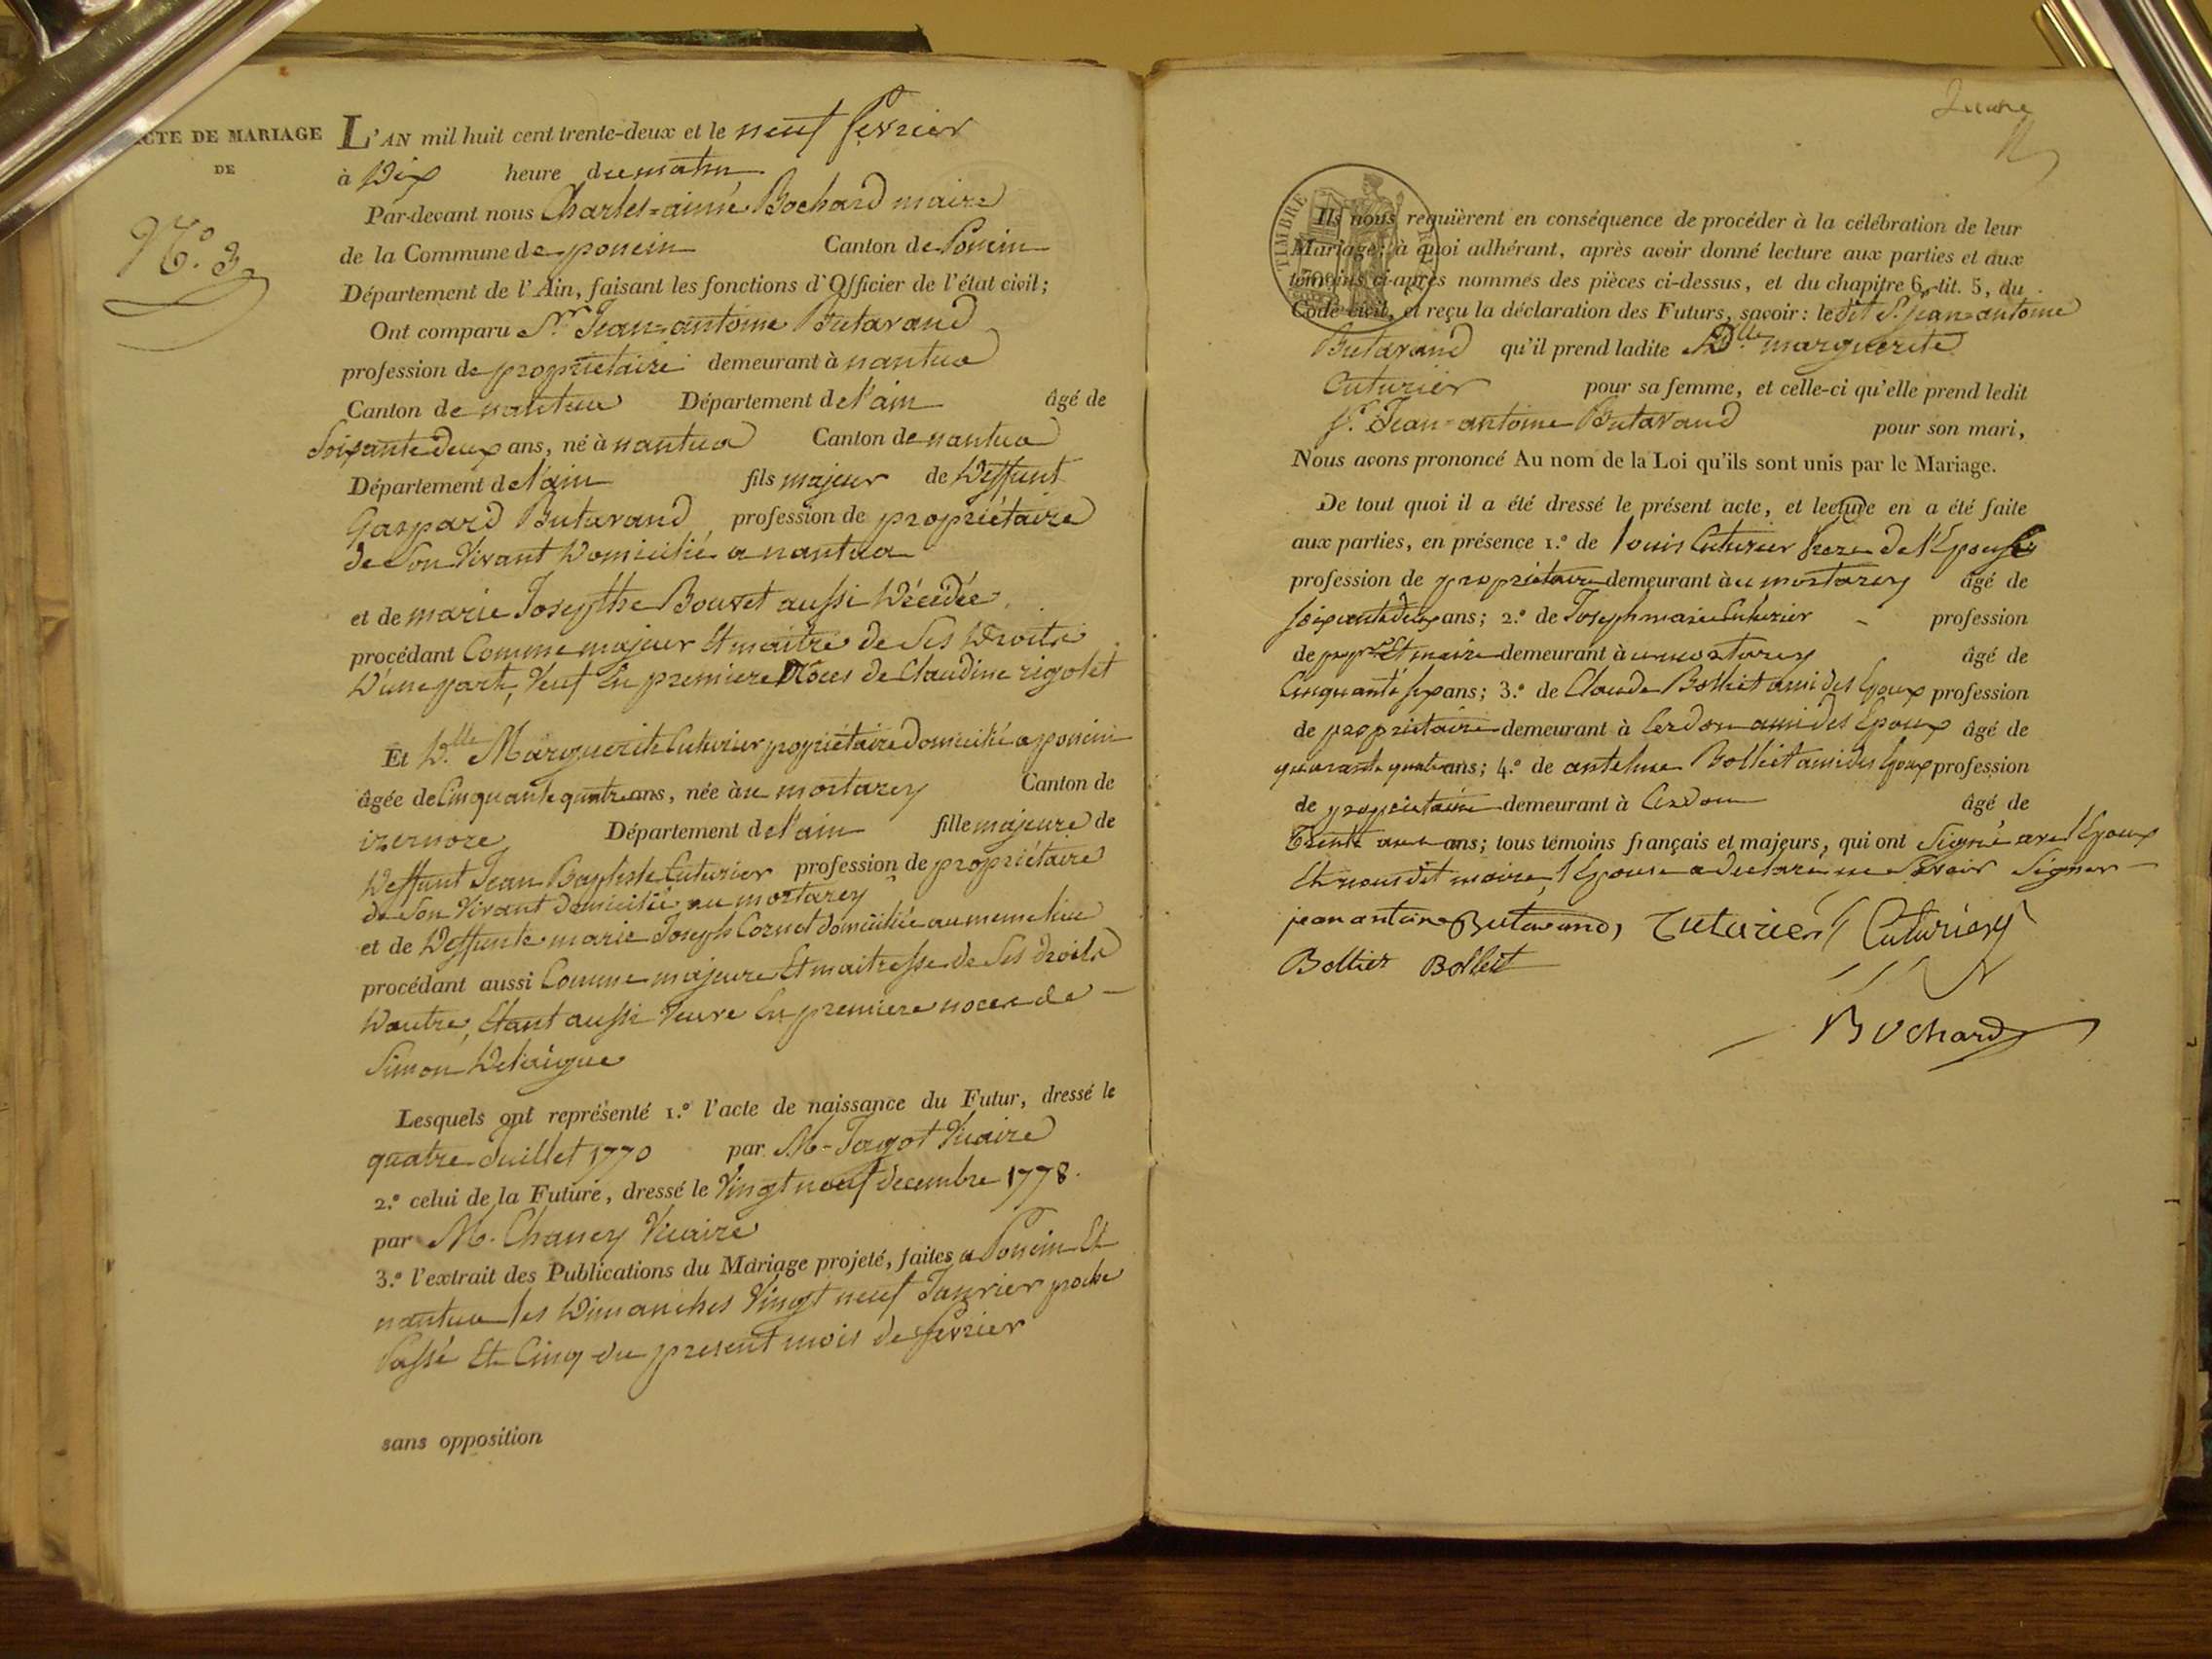 ACTE DE MARIAGE
DE
N.° 3
L'AN mil huit cent trente-deux et le neuf fevrier
à Dix heure du matin
Par-devant nous Charles=aimé Bochard maire
de la Commune de poncin Canton de Poncin
Département de l'Ain, faisant les fonctions d'Officier de l'état civil;
Ont comparu Sr. Jean=antoine Butavand
profession de propriétaire demeurant à nantua
Canton de nantua Département de l'ain âgé de
Soixante Deux ans, né à nantua Canton de nantua
Département de l'ain fils majeur de Deffunt
Gaspard Butavand profession de propriétaire
de Son Vivant Domicilié a nantua
et de marie Josephte Bouvet aussi Décédée
procédant Comme majeur Et maitre de Ses Droits
D'une part, Veuf En premiere Noces de Claudine rigolet
Et D.lle Marguerite Cuturier propriétaire Domicilié a poncin
âgée de Cinquante quatre ans, née àu mortarey Canton de
izernore Département de l'ain fille majeure de
Deffunt Jean Baptiste Cuturier profession de propriétaire
de Son Vivant Domicilié au mortarey
et de Deffunte marie Joseph Cornet domiciliée au meme lieu
procédant aussi Comme majeure Et maitresse de Ses droits
D'autre, Etant aussi Veuve En premiere noces de
Simon Delaigue
Lesquels ont représenté 1.° l'acte de naissance du Futur, dressé le
quatre Juillet 1770 par M. Jagot Vicaire
2.° celui de la Future, dressé le Vingt neuf decembre 1778.
par M. Chaney Vicaire
3.° l'extrait des Publications du Mariage projeté, faites a Poncin Et
nantua les Dimanches Vingt neuf Janvier proche
Passé Et Cinq du present mois de fevrier
sans opposition
TIMBRE
Ils nous requièrent en conséquence de procéder à la célébration de leur
Mariage; à quoi adhérant, après avoir donné lecture aux parties et aux
témoins ci-après nommés des pièces ci-dessus, et du chapitre 6, tit. 5, du
Code civil, et reçu la déclaration des Futurs, savoir: ledit Sr. Jean=antoine
Butavand qu'il prend ladite D.lle marguerite
Cuturier pour sa femme, et celle-ci qu'elle prend ledit
Sr. Jean=antoine Butavand pour son mari,
Nous avons prononcé Au nom de la Loi qu'ils sont unis par le Mariage.
De tout quoi il a été dressé le présent acte, et lecture en a été faite
aux parties, en présence 1.° de Louis Cuturier frere de l'Epouse
profession de propriétaire demeurant àu mortarey âgé de
soixante deux ans; 2.° de Joseph marie Cuturier profession
de propre Et maire demeurant à au mortarey âgé de
Cinquante six ans; 3.° de Claude Bolliet ami des Epoux profession
de propriétaire demeurant à Cerdon ami des Epoux âgé de
quarante quatre ans; 4.° de antelme Bolliet ami des Epoux profession
de propriétaire demeurant à Cerdon âgé de
Trente ans; tous témoins français et majeurs, qui ont Signé avec l'Epoux
Et nous dit maire, l'Epouse a declaré ne Savoir Signer
jean antoine Butavand, Cuturier Cuturier
Bolliet Bolliet
Bochard